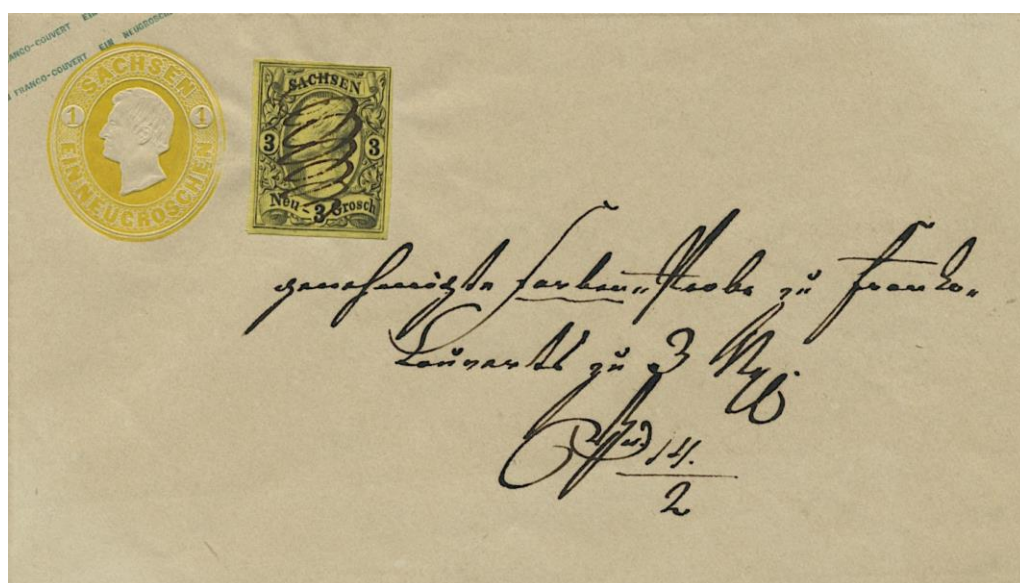 FRANCO-COUVERT EIN
FRANCO-COUVERT EIN NEUGROSCHEN
SACHSEN
1 1
EIN NEUGROSCHEN
SACHSEN
3 3
Neu - 3 Grosch
genehmigte Farben-Probe zu Franko-
Couverts zu 3 Ngr
14.
2